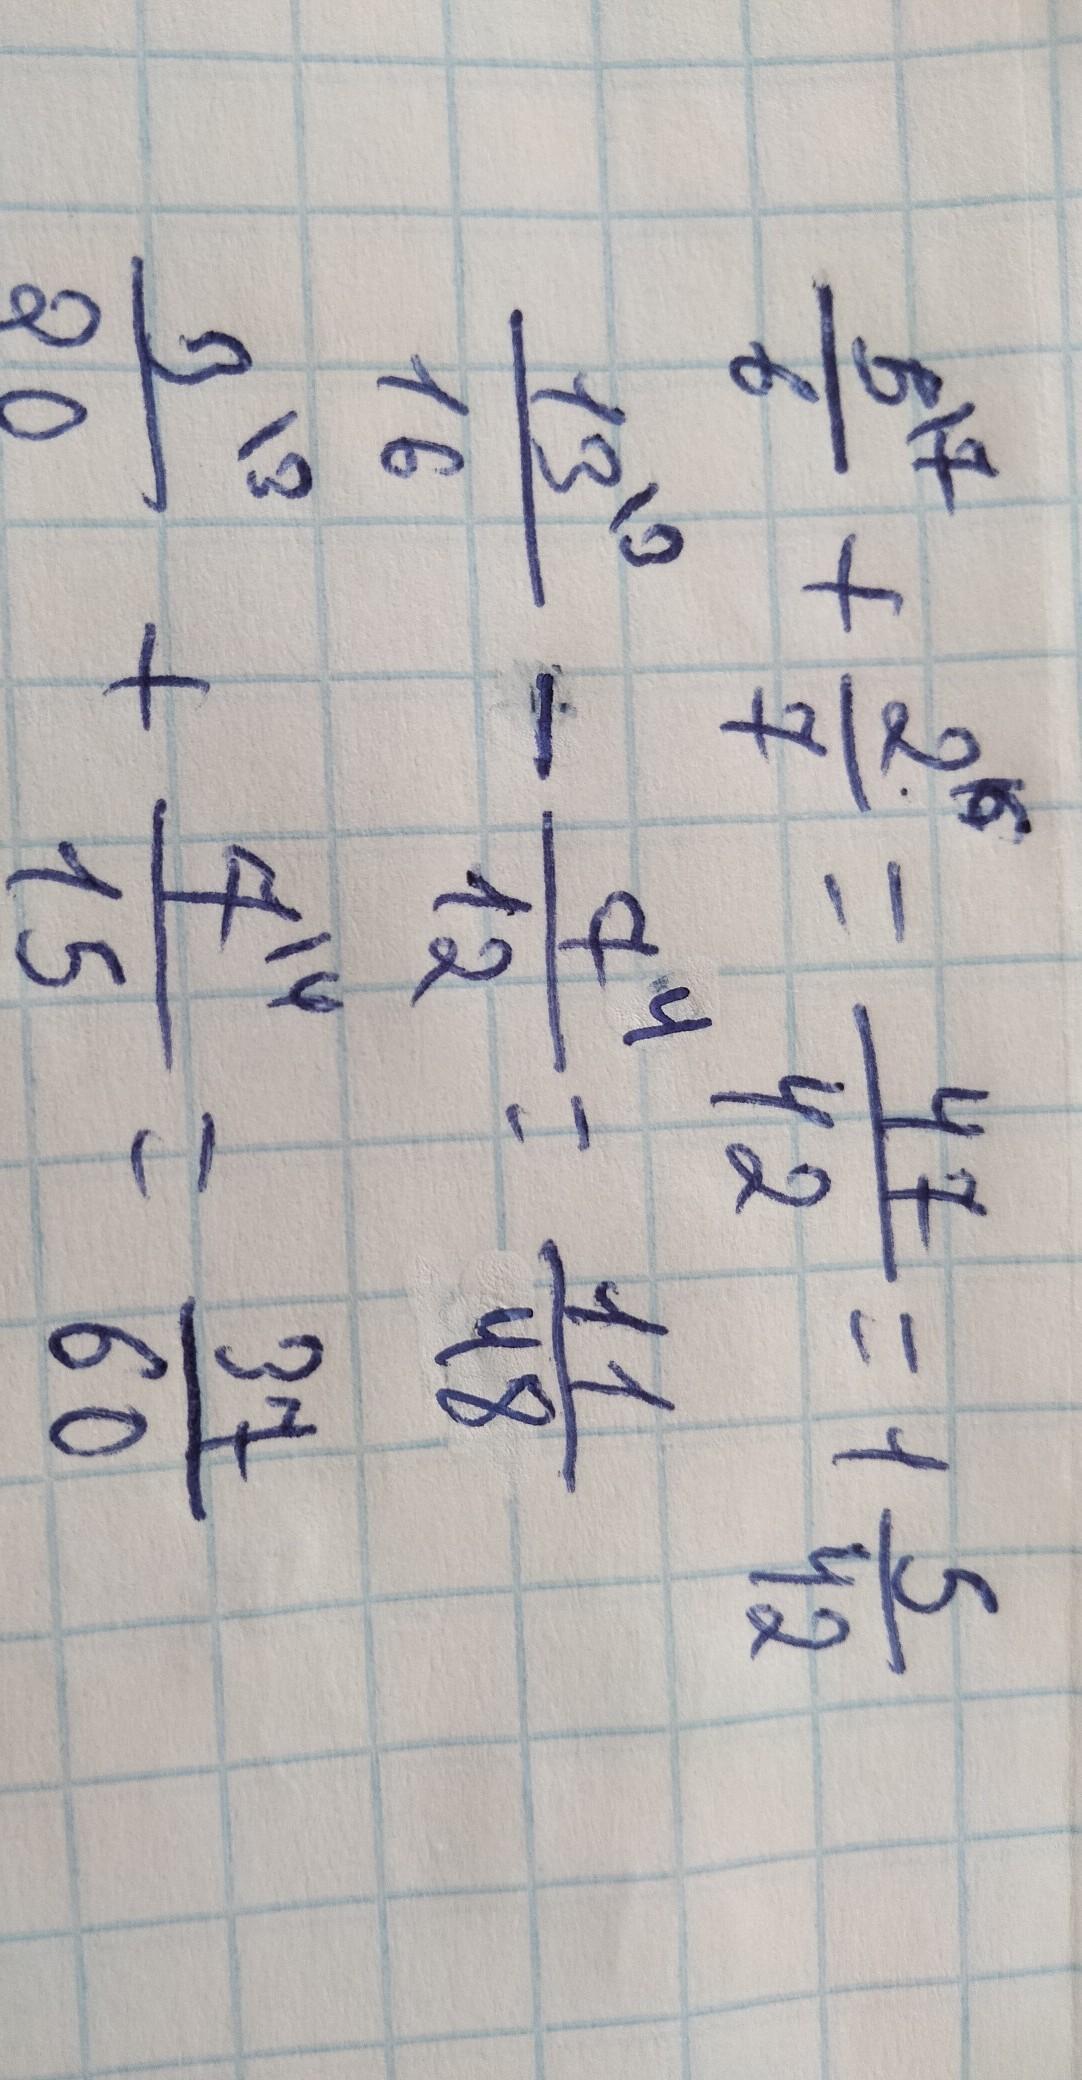 5\7/6 + 2\6/7 = 47/42 = 1 5/42
13\3/16 - 7\4/12 = 11/48
3\3/20 + 7\4/15 = 37/60